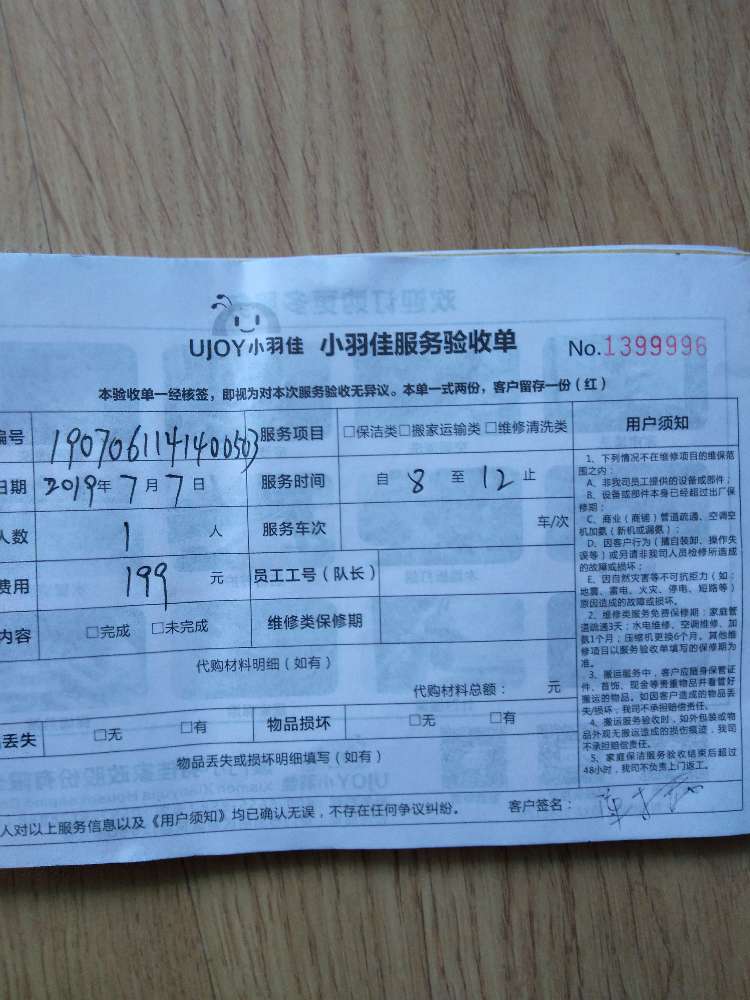 UJOY小羽佳 小羽佳服务验收单 No.1399996
本验收单一经核签，即视为对本次服务验收无异议。本单一式两份，客户留存一份（红）
编号 1907061141400503 服务项目 □保洁类□搬家运输类 □维修清洗类
日期 2019年7月7日 服务时间 自 8 至 12 止
人数 1 人 服务车次 车/次
费用 199 元 员工工号（队长）
内容 □完成 □未完成 维修类保修期
代购材料明细（如有）
代购材料总额： 元
丢失 □无 □有 物品损坏 □无 □有
物品丢失或损坏明细填写（如有）
人对以上服务信息以及《用户须知》均已确认无误，不存在任何争议纠纷。 客户签名：
用户须知
1、下列情况不在维修项目的维保范
围之内：
A、非我司员工提供的设备或部件；
B、设备或部件本身已经超过出厂保
修期；
C、商业（商铺）管道疏通、空调空
机加氨（新机或漏氨）；
D、因客户行为（擅自装卸、操作失
误等）或另请非我司人员检修所造成
的故障或损坏；
E、因自然灾害等不可抗力（如：
地震、雷电、火灾、停电、短路等）
原因造成的故障或损坏。
2、维修类服务免费保修期：家庭管
道疏通3天；水电维修、空调维修、加
氨1个月；压缩机更换6个月。其他维
修项目以服务验收单填写的保修期为
准。
3、搬运服务中，客户应随身保管证
件、首饰、现金等贵重物品并看管好
搬运的物品。如因客户造成的物品丢
失/损坏，我司不承担赔偿责任。
4、搬运服务验收时，如外包装或物
品外观无搬运造成的损伤痕迹，我司
不承担赔偿责任。
5、家庭保洁服务验收结束后超过
48小时，我司不负责上门返工。